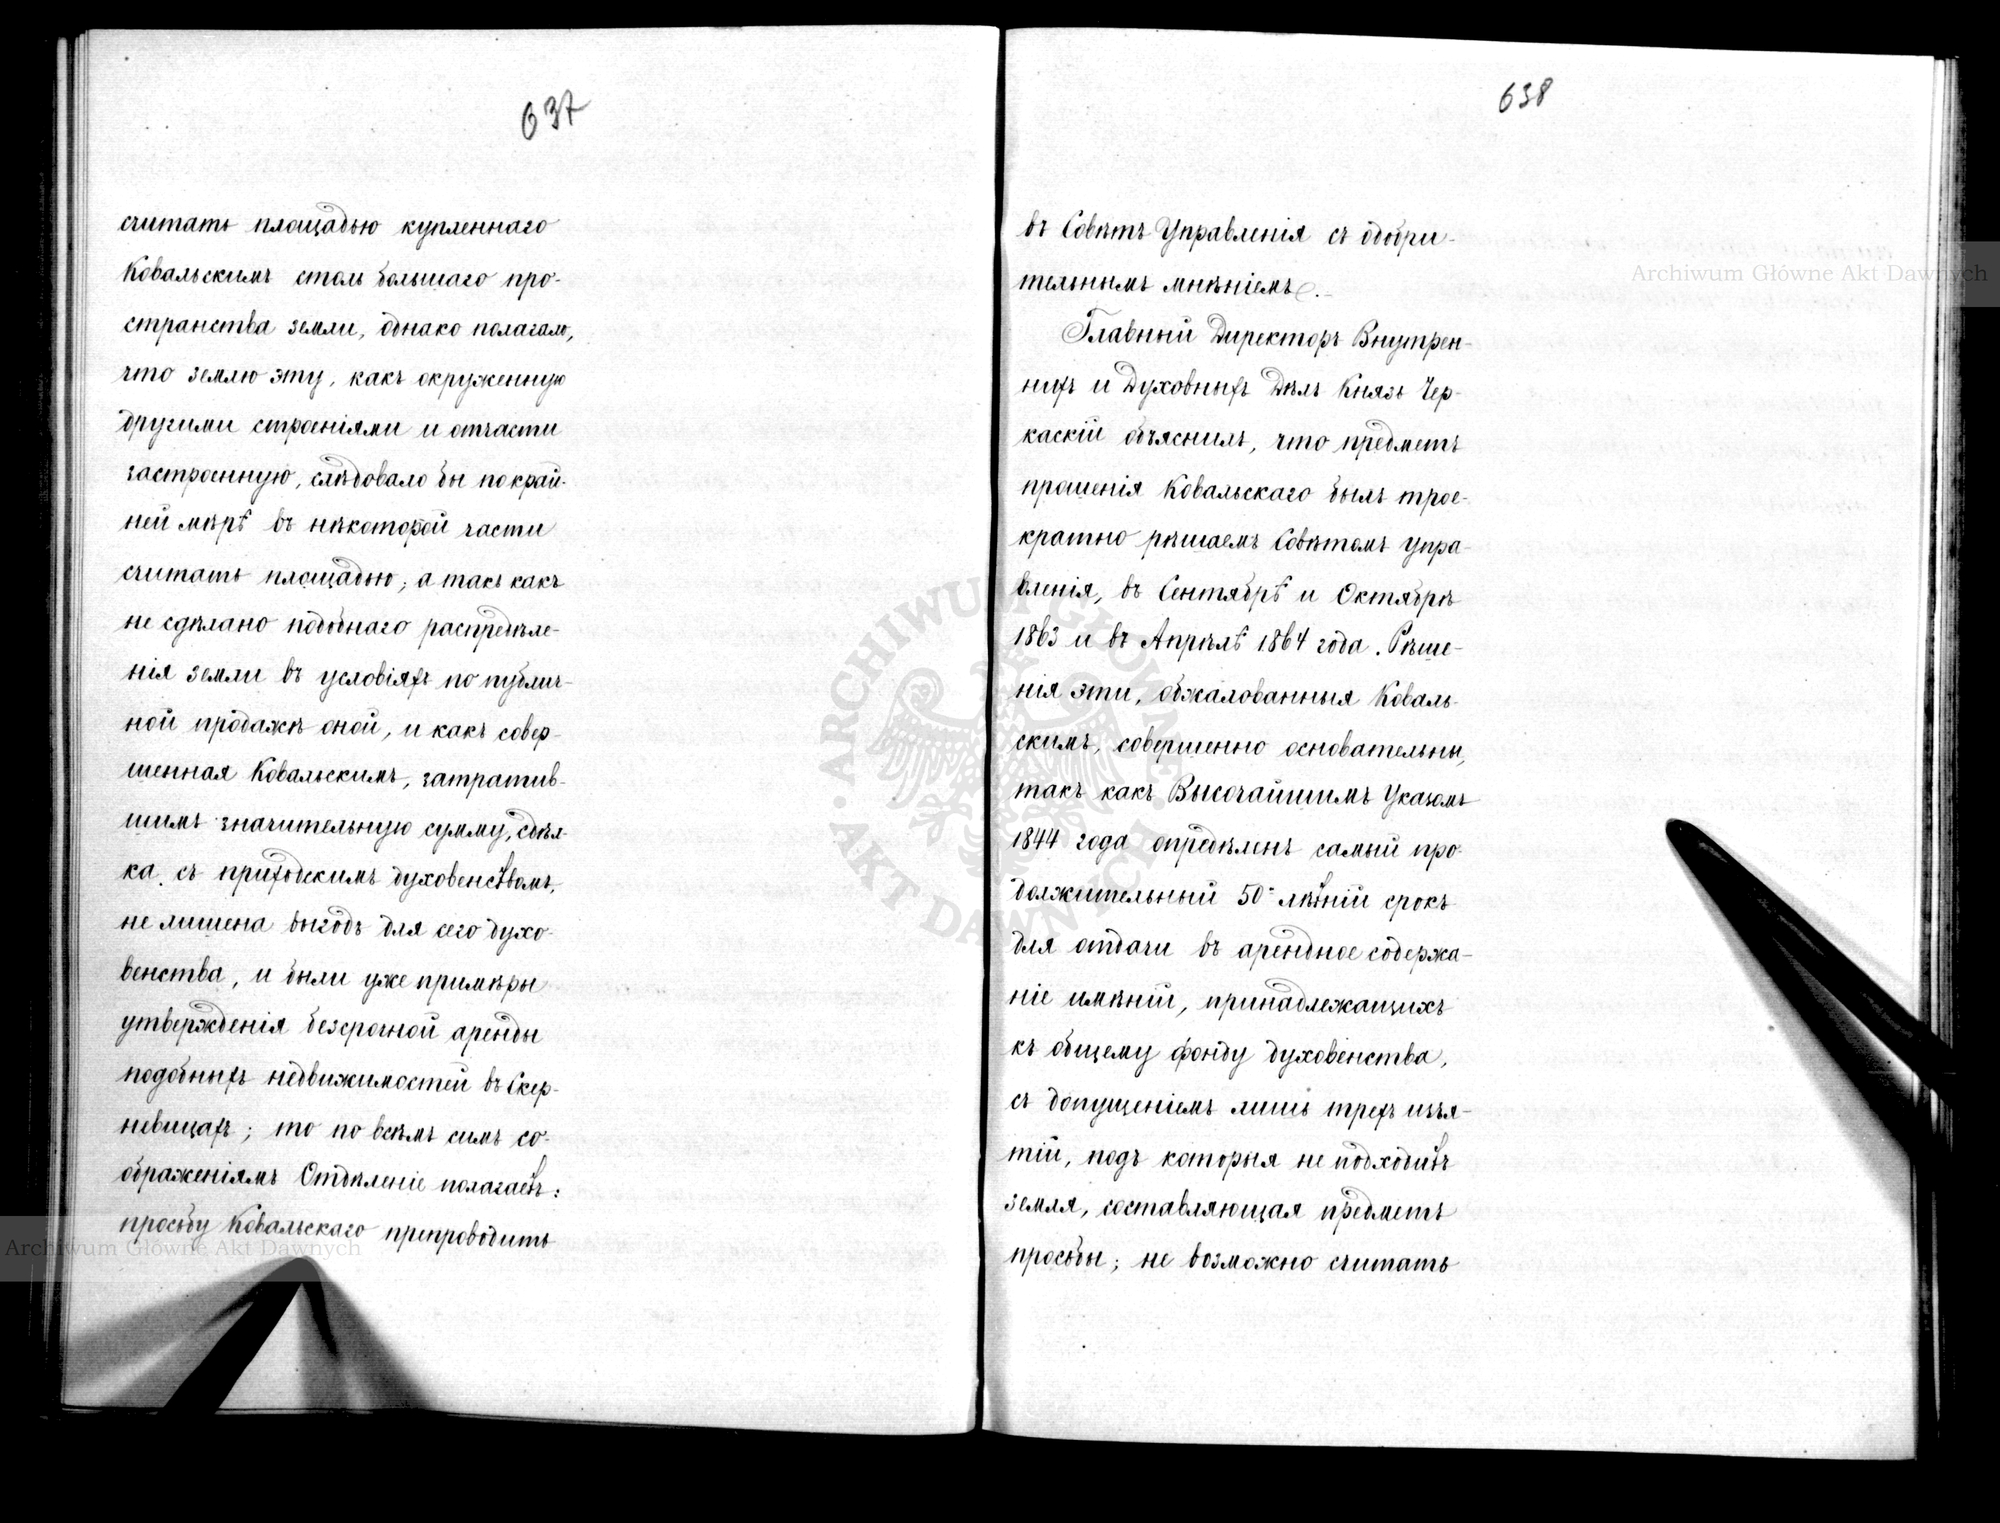 637
считать площадью купленнаго
Ковальскимъ столь большаго про-
странства земли, однако полагалъ,
что землю эту, какъ окруженную
другими строеніями и отчасти
застроенную, слѣдовало бы по край-
ней мѣрѣ въ нѣкоторой части
считать площадью; а такъ какъ
не сдѣлано подобнаго распредѣле-
нія земли въ условіяхъ по публич-
ной продажѣ оной, и какъ совер-
шенная Ковальскимъ, затратив-
шимъ значительную сумму, сдѣл-
ка съ приходскимъ духовенствомъ,
не лишена выгодъ для сего духо-
венства, и были уже примѣры
утвержденія безсрочной аренды
подобныхъ недвижимостей въ Скер-
невицахъ; то по всѣмъ симъ со-
ображеніямъ Отдѣленіе полагаетъ:
просьбу Ковальскаго препроводить
638
въ Совѣтъ Управленія съ одобри-
тельнымъ мнѣніемъ.
Главный Директоръ Внутрен-
нихъ и Духовныхъ Дѣлъ Князь Чер-
каскій объяснилъ, что предметъ
прошенія Ковальскаго былъ трое-
кратно рѣшаемъ Совѣтомъ Упра-
вленія, въ Сентябрѣ и Октябрѣ
1863 и въ Апрѣлѣ 1864 года. Рѣше-
нія эти, обжалованныя Коваль-
скимъ, совершенно основательны,
такъ какъ Высочайшимъ Указомъ
1844 года опредѣленъ самый про-
должительный 50-лѣтній срокъ
для отдачи въ арендное содержа-
ніе имѣній, принадлежащихъ
къ общему фонду духовенства,
съ допущеніемъ лишь трехъ изъя-
тій, подъ которыя не подходитъ
земля, составляющая предметъ
просьбы; не возможно считать
Archiwum Główne Akt Dawnych
Archiwum Główne Akt Dawnych
ARCHIWUM GŁÓWNE
AKT DAWNYCH